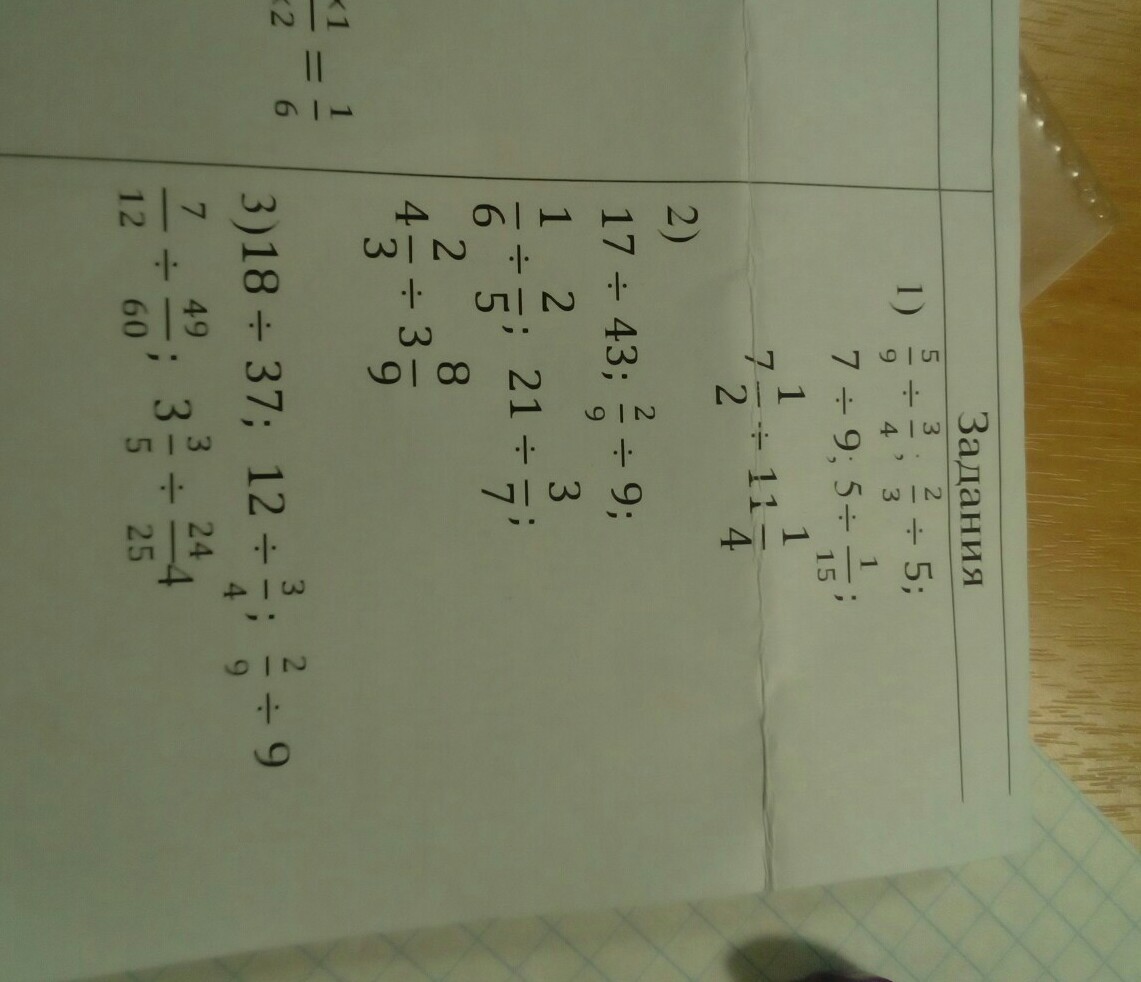 Задания
1) 5/9 ÷ 3/4; 2/3 ÷ 5;
7 ÷ 9; 5 ÷ 1/15;
7 1/2 ÷ 11 1/4
2)
17 ÷ 43; 2/9 ÷ 9;
1/6 ÷ 2/5; 21 ÷ 3/7;
4 2/3 ÷ 3 8/9
3)18 ÷ 37; 12 ÷ 3/4; 2/9 ÷ 9
7/12 ÷ 49/60; 3 3/5 ÷ 24/25 4
×1/×2 = 1/6